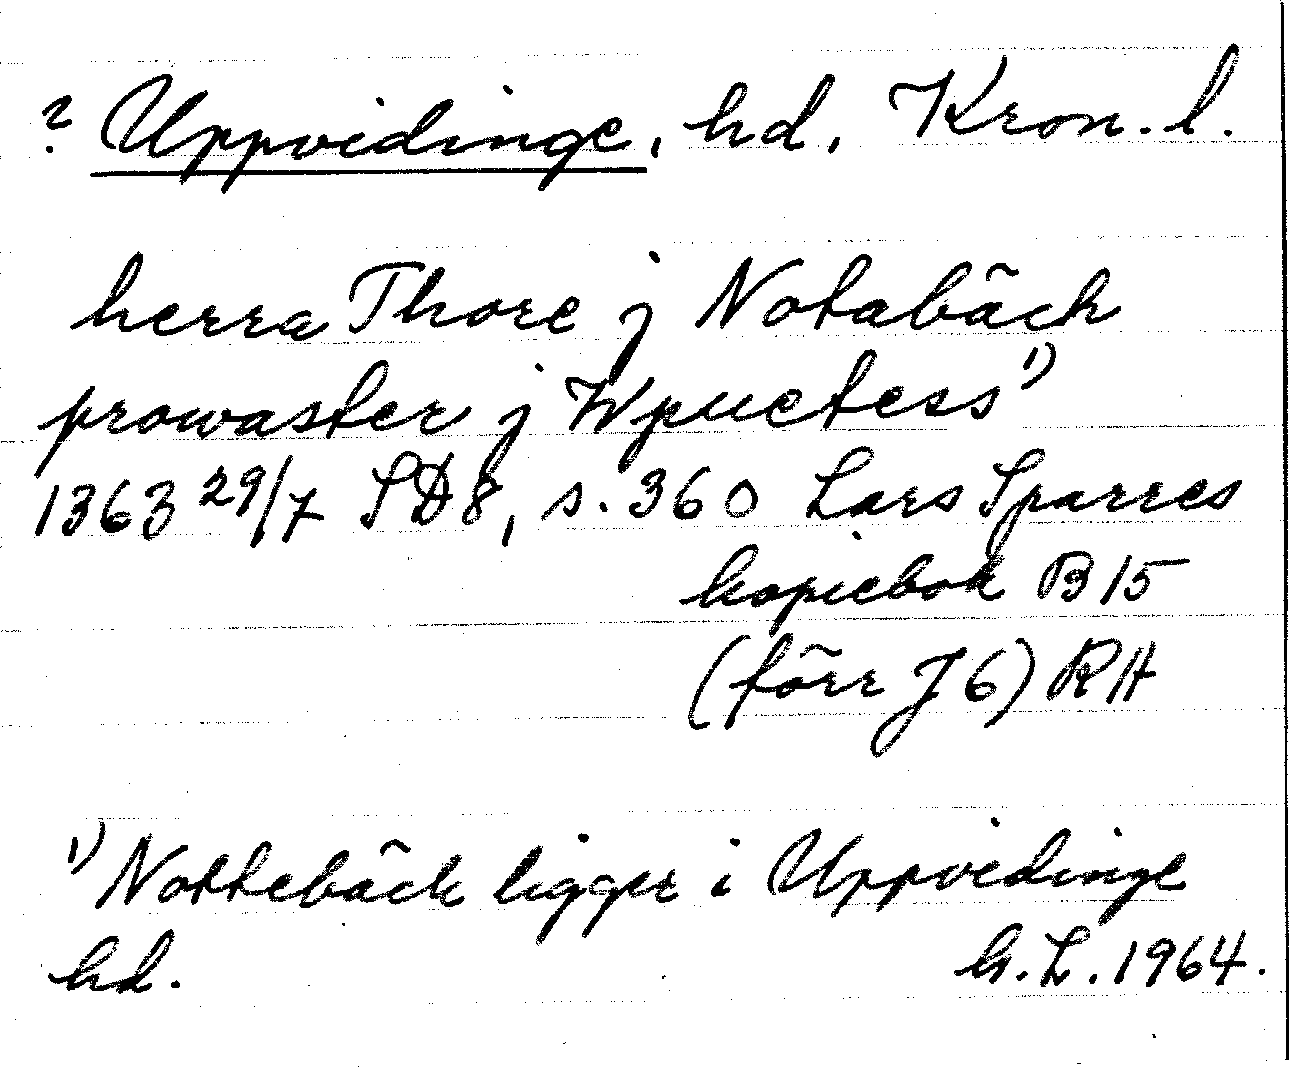 ? Uppvidinge, hd, Kron. l.
herra Thore j Notabäck
prowaster j Wpuetess 1)
1363 29/7 SD 8, s. 360 Lars Sparres
kopiebok B 15
(förr J 6) RA
1) Nottebäck ligger i Uppvidinge
hd. h. L. 1964.